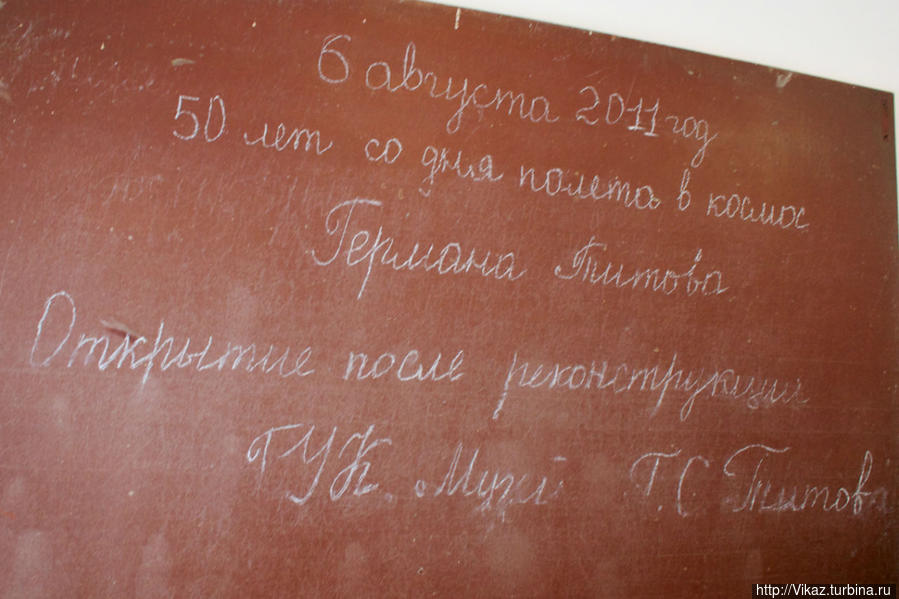 6 августа 2011 год
50 лет со дня полета в космос
Германа Титова
Открытие после реконструкции
ГУК Музей Г.С Титова
http://Vikaz.turbina.ru